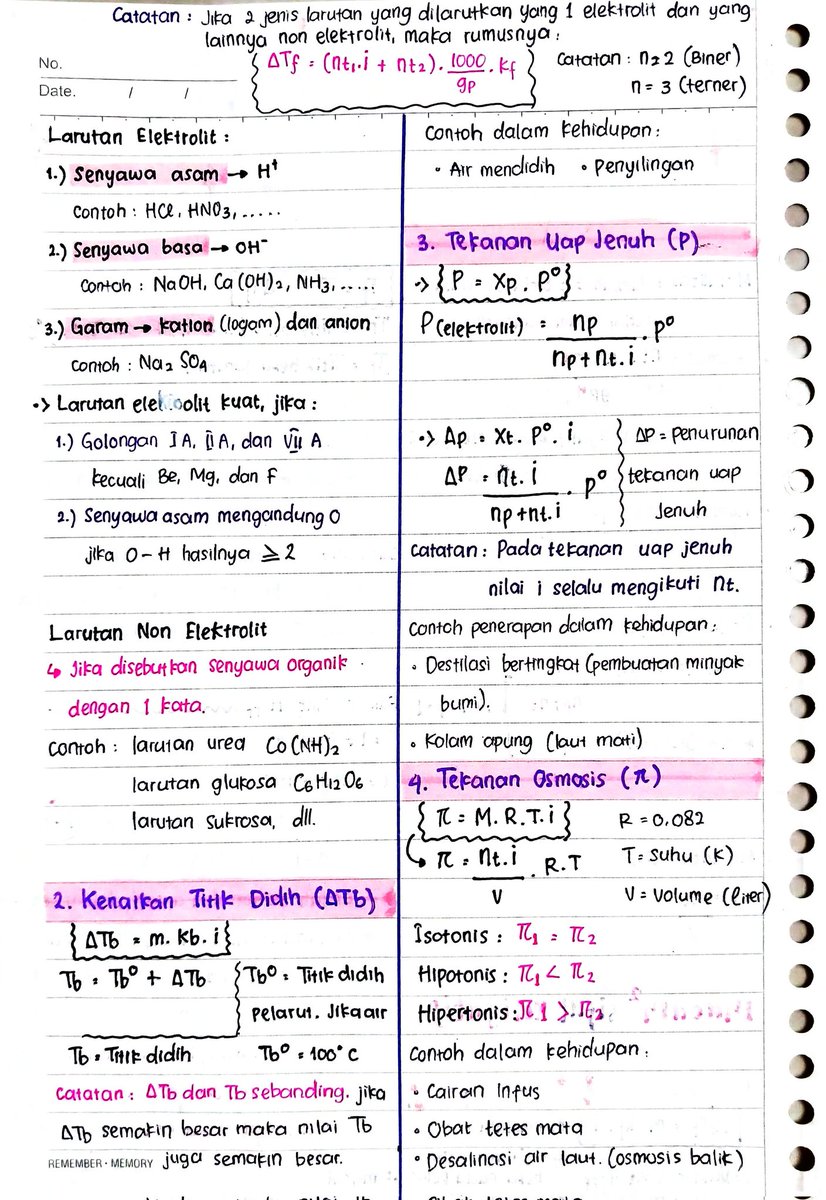 Catatan : Jika 2 jenis larutan yang dilarutkan yang 1 elektrolit dan yang
lainnya non elektrolit, maka rumusnya :
No.
Date. / /
ΔTf = (nt₁.i + nt₂) . 1000/gp . Kf
Catatan : n = 2 (Biner)
n = 3 (terner)
Larutan Elektrolit :
1.) Senyawa asam → H⁺
Contoh : HCl, HNO₃, .....
2.) Senyawa basa → OH⁻
Contoh : NaOH, Ca(OH)₂, NH₃, .....
3.) Garam → kation (logam) dan anion
contoh : Na₂ SO₄
·> Larutan elektrolit kuat, jika :
1.) Golongan I A, II A, dan VII A
kecuali Be, Mg, dan F
2.) Senyawa asam mengandung O
jika O - H hasilnya ≥ 2
Larutan Non Elektrolit
↳ Jika disebutkan senyawa organik
dengan 1 kata.
Contoh : larutan urea Co(NH)₂
larutan glukosa C₆H₁₂O₆
larutan sukrosa, dll.
2. Kenaikan Titik Didih (ΔTb)
ΔTb = m. Kb. i
Tb = Tb° + ΔTb
Tb° = Titik didih
pelarut. Jika air
Tb = Titik didih
Tb° = 100° C
Catatan : ΔTb dan Tb sebanding. jika
ΔTb semakin besar maka nilai Tb
REMEMBER · MEMORY juga semakin besar.
Contoh dalam kehidupan :
• Air mendidih • Penyulingan
3. Tekanan Uap Jenuh (P)
·> P = Xp . P°
P(elektrolit) = np/np+nt.i . P°
·> Δp = Xt. P°. i
ΔP = nt.i/np+nt.i . P°
ΔP = Penurunan
tekanan uap
Jenuh
Catatan : Pada tekanan uap jenuh
nilai i selalu mengikuti nt.
Contoh penerapan dalam kehidupan :
• Destilasi bertingkat (pembuatan minyak
bumi).
• Kolam apung (laut mati)
4. Tekanan Osmosis (π)
π = M. R. T. i
R = 0,082
π = nt.i/V . R.T
T = Suhu (K)
V = Volume (liter)
Isotonis : π₁ = π₂
Hipotonis : π₁ < π₂
Hipertonis : π₁ > π₂
Contoh dalam kehidupan :
• Cairan Infus
• Obat tetes mata
• Desalinasi air laut. (osmosis balik)